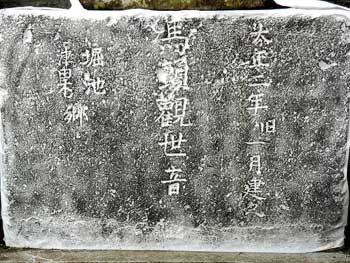 大正二年旧一月建之
馬頭觀世音
堀池
郷